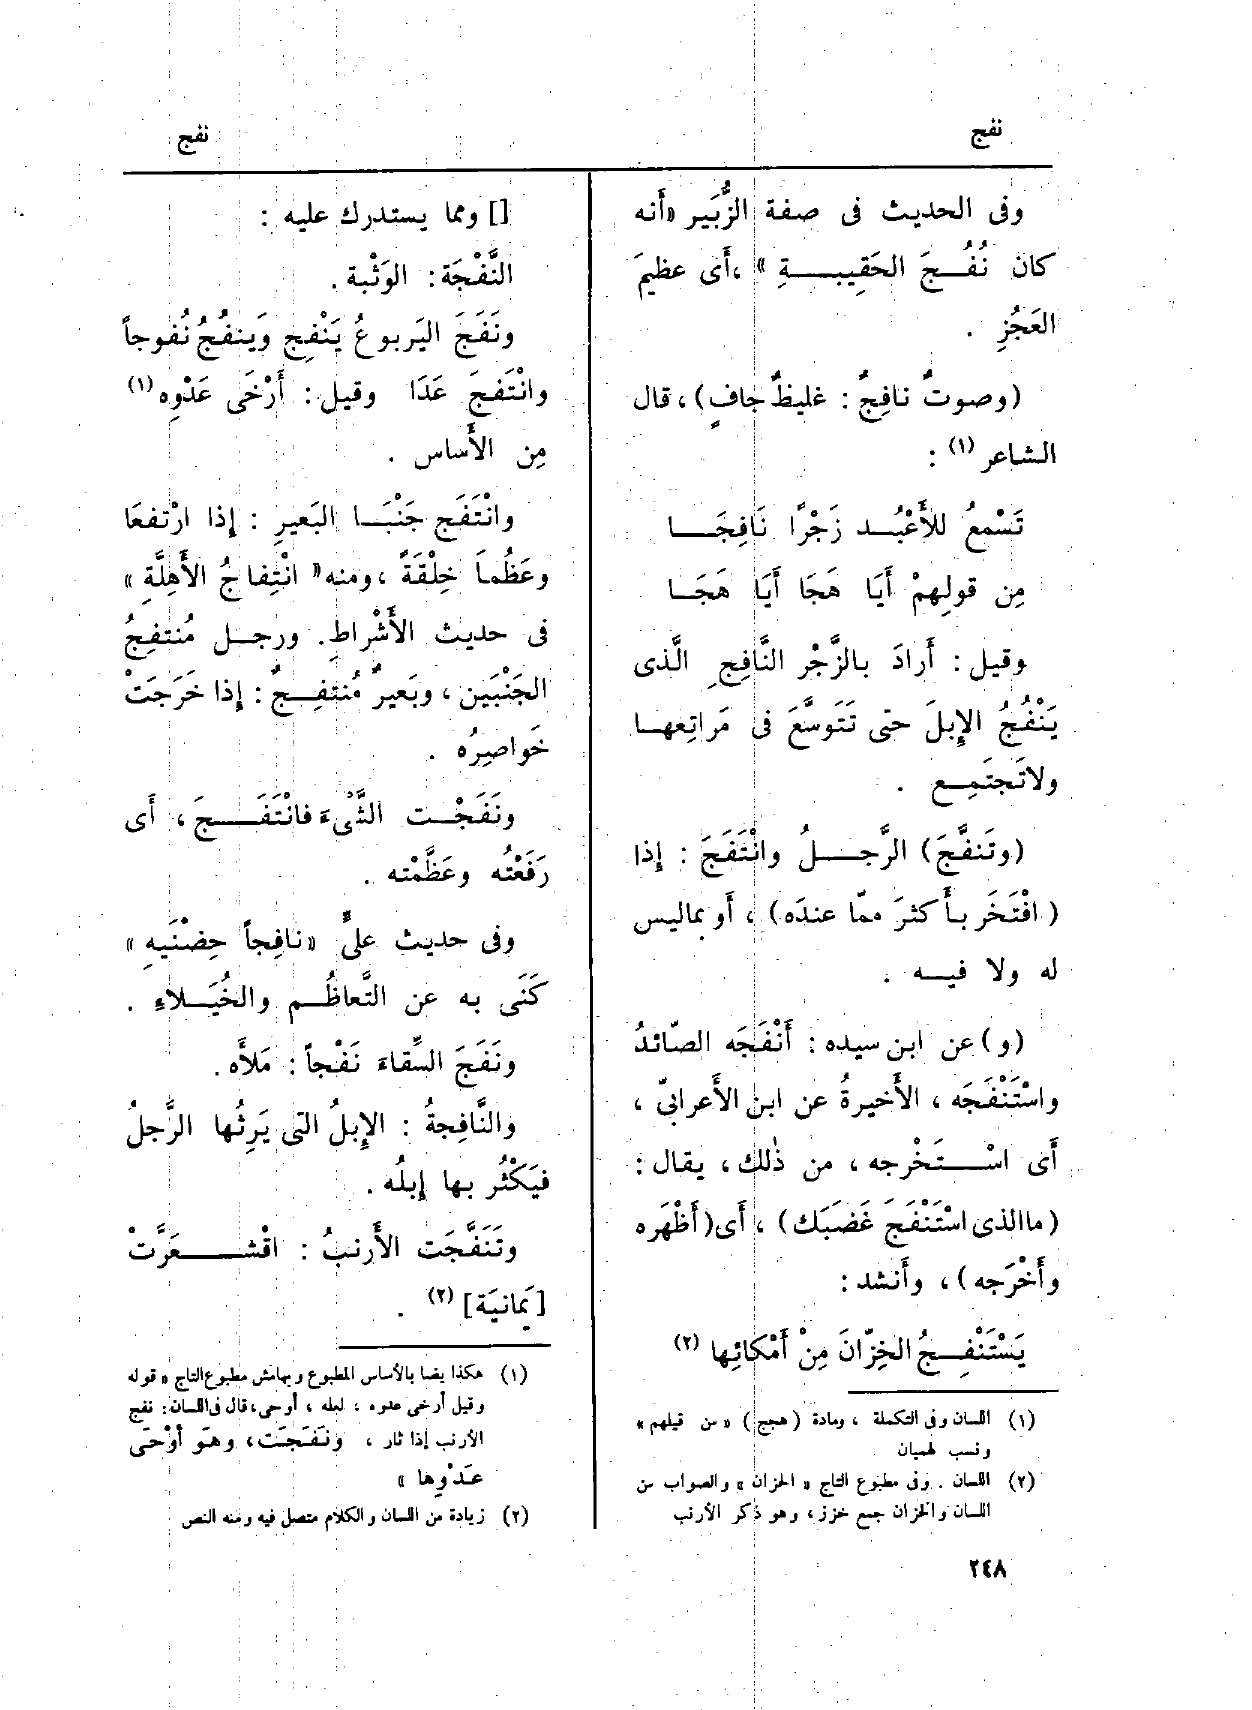 نفج
نفج
وفى الحديث فى صفة الزُّبَير «أَنه
كان نُفُــجَ الحَقِيبـــةِ» ،أَى عظيمَ
العَجُزِ .
(وصوتٌ نافِجٌ : غليظٌ جافٍ) ، قال
الشاعر (١) :
تَسْمعُ للأَعْبُــد زَجْرًا نَافِجَــا
مِن قولِهمْ أَيَا هَجَا أَيَا هَجَــا
وقيل : أَرادَ بالزَّجْر النَّافِجِ الَّذى
يَنْفُجُ الإِبلَ حتى تَتَوسَّعَ فى مَراتِعهــا
ولاتَجتَمِــع .
(وتَنفَّجَ) الرَّجــلُ وانْتَفَجَ : إِذا
( افْتَخَر بأَكثرَ ممّا عندَه) ، أَو بماليس
له ولا فيــه .
(و) عن ابن سيده : أَنْفَجَه الصّائدُ
واسْتَنْفَجَه ، الأَخيرةُ عن ابن الأَعرابىّ ،
أَى اسْــتَخْرجه ، من ذٰلك ، يقال :
(ماالذى اسْتَنْفَجَ غَضَبَك) ، أَى(أَظْهَره
وأَخْرَجه) ، وأَنشد :
يَسْتَنْفِــجُ الخِزّانَ مِنْ أَمْكائِها (٢)
(١) اللسان وفى التكملة ، ومادة (هجج) «من قيلهم»
ونسب لهميان
(٢) اللسان . وفى مطبوع التاج «الخزان» والصواب من
اللسان والخزان جمع خزز ، وهو ذكر الأرنب
[] ومما يستدرك عليه :
النَّفْجَة : الوَثْبة .
ونَفَجَ اليَربوعُ يَنْفِج وَيَنفُجُ نُفوجاً
وانْتَفجَ عَدَا وقيل : أَرْخَى عَدْوِه (١)
مِن الأَساس .
وانْتَفَج جَنْبَــا البَعيرِ : إِذا ارْتفعَا
وعَظُمــا خِلْقَةً ، ومنه «انْتِفاجُ الأَهِلَّةِ»
فى حديث الأَشْراطِ . ورجــل مُنتفِجُ
الجَنْبَين ، وبَعيرٌ مُنتفِــجٌ : إِذا خَرَجَتْ
خَواصِرُه .
ونَفَجْــت الشَّىْءَ فانْتَفَـــجَ ، أَى
رَفَعْتُه وعَظَّمْته .
وفى حديث علىٍّ «نافِجاً حِضْنَيهِ»
كَنَى به عن التَّعاظُــم والخُيَــلاءِ .
ونَفَجَ السِّقاءَ نَفْجاً : مَلأَه .
والنَّافِجةُ : الإِبلُ التى يَرِثُها الرَّجلُ
فيَكْثُر بها إِبلُه .
وتَنَفَّجَت الأَرنبُ : اقْشــــعَرَّتْ
[يَمانيَة] (٢) .
(١) هكذا يضا بالأساس المطبوع وبهامش مطبوع التاج «قوله
وقيل أرخى عدوه ، لعله ، أوحى ، قال فى اللسان : نفج
الأرنب إذا ثار ، ونَفَجَت ، وهو أَوْحَى
عَدْوِها »
(٢) زيادة من اللسان والكلام متصل فيه ومنه النص
٢٤٨